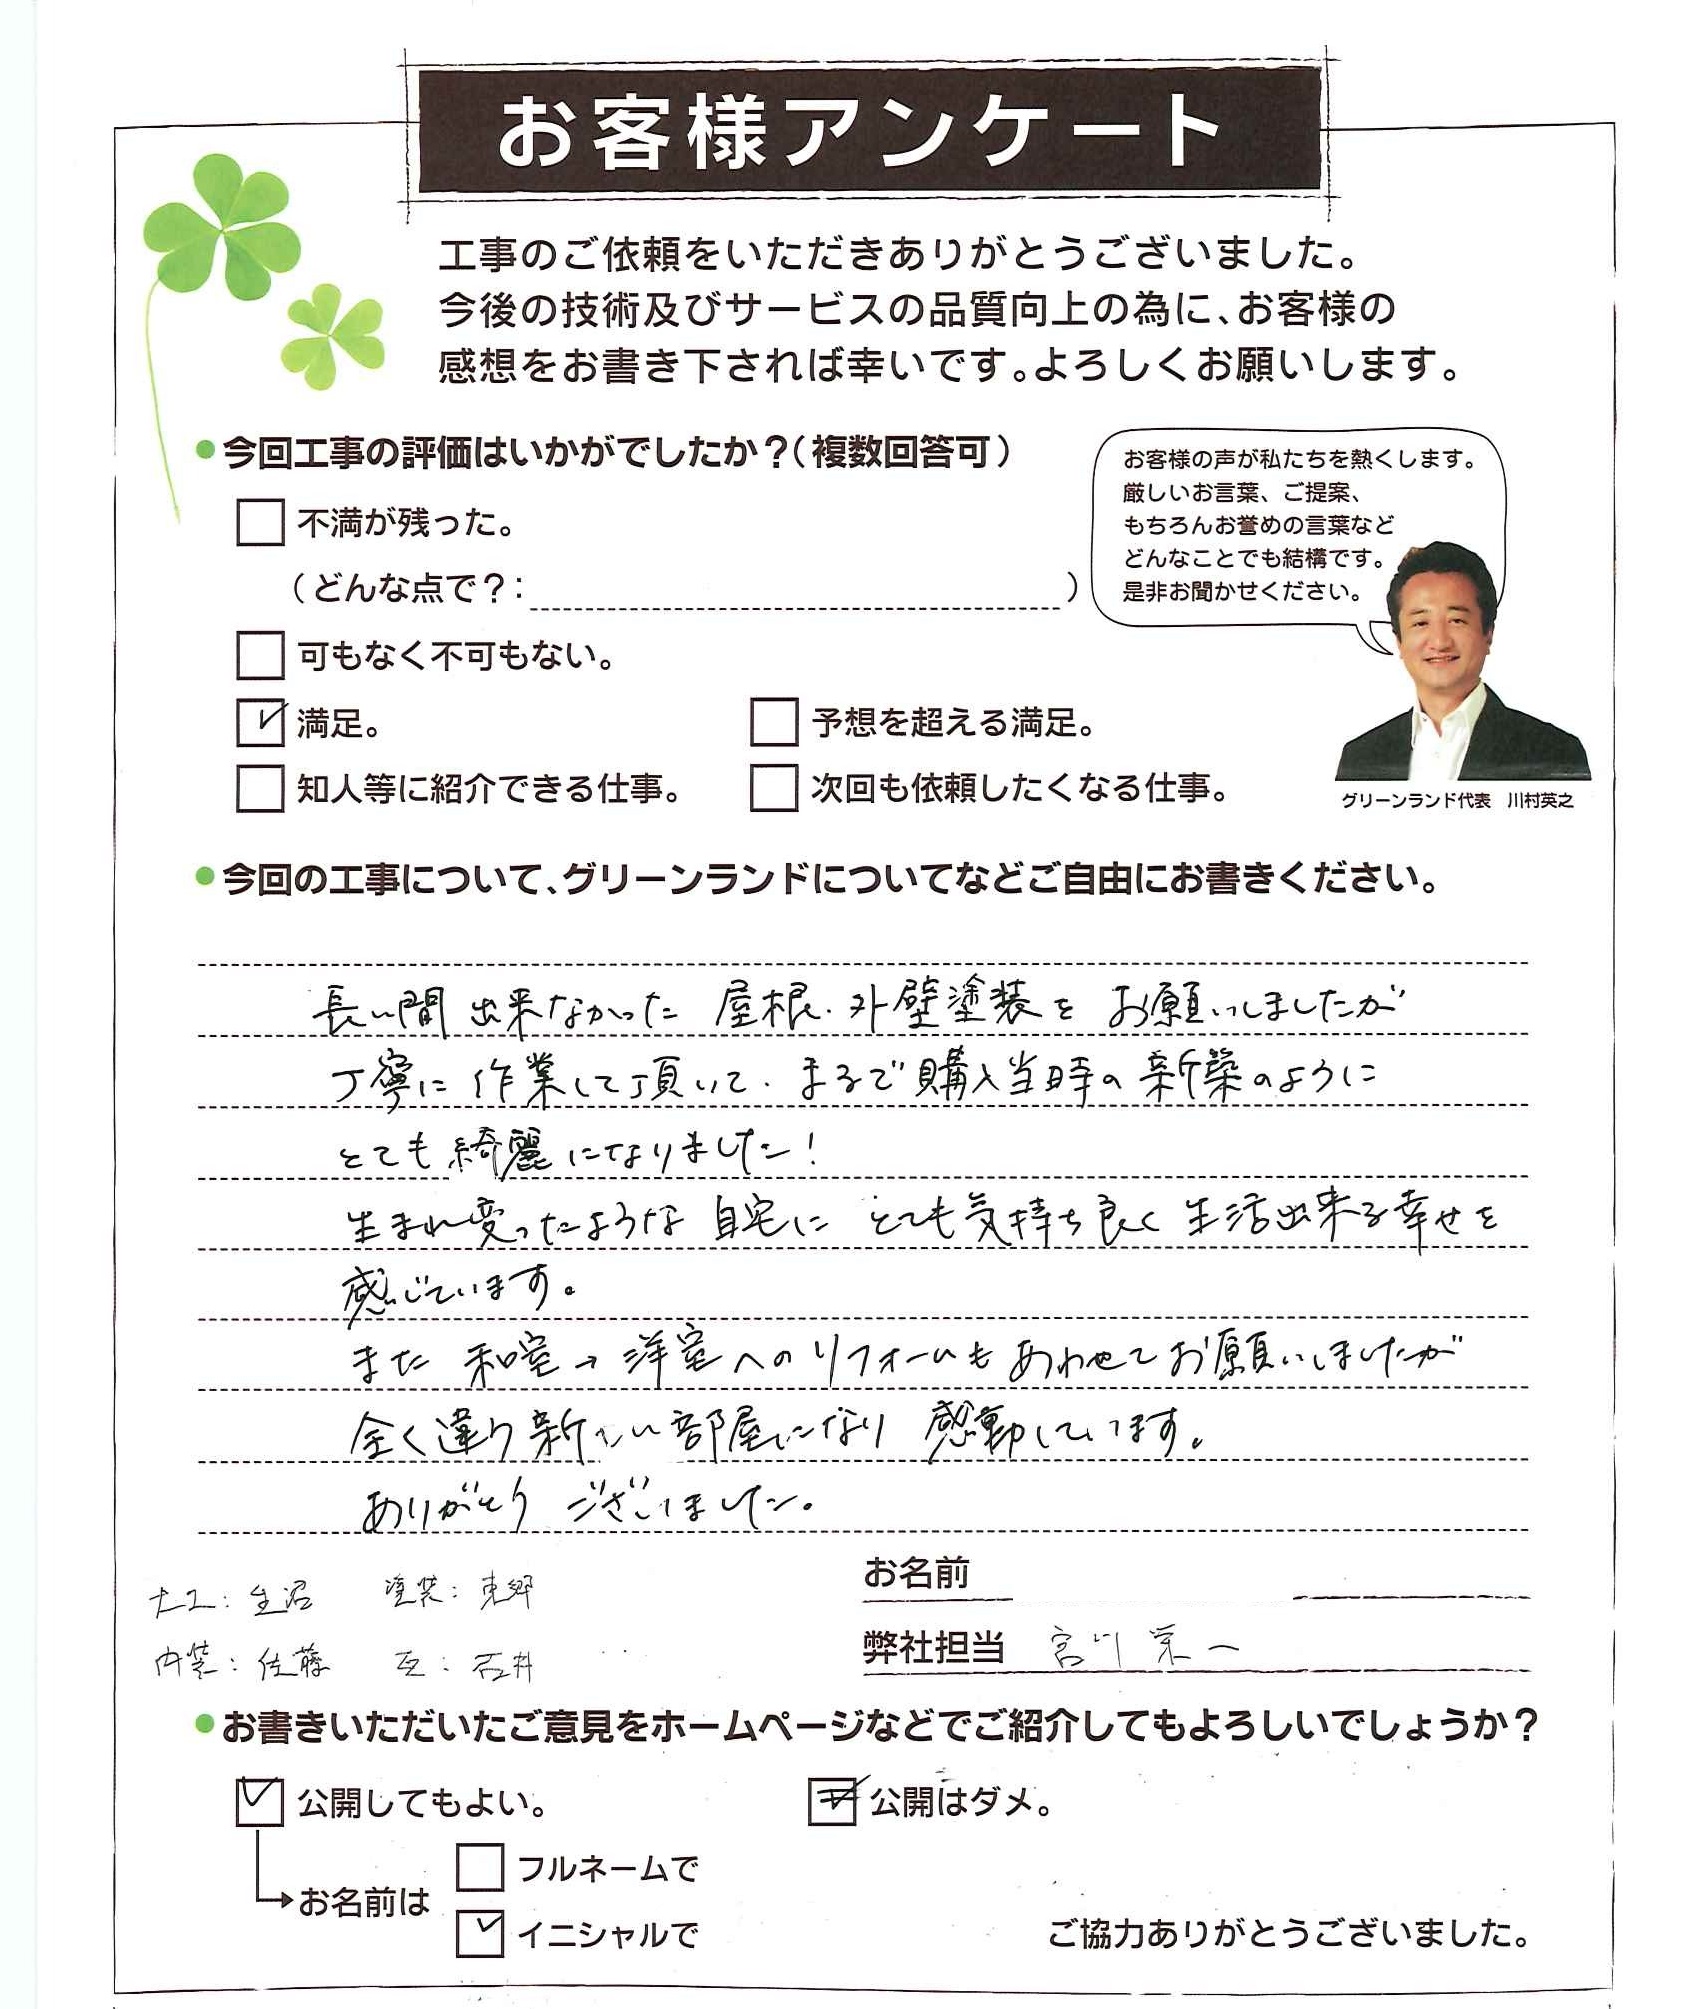 お客様アンケート
工事のご依頼をいただきありがとうございました。
今後の技術及びサービスの品質向上の為に、お客様の
感想をお書き下されば幸いです。よろしくお願いします。
●今回工事の評価はいかがでしたか？（複数回答可）
不満が残った。
（どんな点で？：　）
可もなく不可もない。
満足。
予想を超える満足。
知人等に紹介できる仕事。
次回も依頼したくなる仕事。
お客様の声が私たちを熱くします。
厳しいお言葉、ご提案、
もちろんお誉めの言葉など
どんなことでも結構です。
是非お聞かせください。
グリーンランド代表　川村英之
●今回の工事について、グリーンランドについてなどご自由にお書きください。
長い間 出来なかった 屋根・外壁塗装を お願いしましたが
丁寧に 作業して頂いて、まるで購入当時の新築のように
とても綺麗になりました！
生まれ変ったような 自宅に とても気持ち良く生活出来る幸せを
感じています。
また 和室→洋室へのリフォームも あわせてお願いしましたが
全く違う新しい部屋になり 感動しています。
ありがとう ございました。
大工：生沼　塗装：東郷
内装：佐藤　瓦：石井
お名前
弊社担当　宮川 栄一
●お書きいただいたご意見をホームページなどでご紹介してもよろしいでしょうか？
公開してもよい。
公開はダメ。
お名前は
フルネームで
イニシャルで
ご協力ありがとうございました。